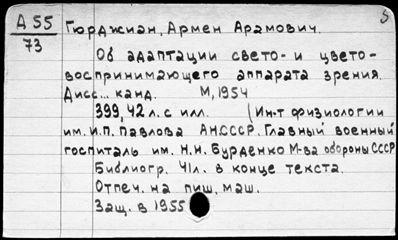 5
А 55
73
Гюрджиан, Армен Арамович.
Об адаптации свето- и цвето-
воспринимающего аппарата зрения.
Дисс... канд. М, 1954
399, 42 л. с илл. (Ин-т физиологии
им. И.П. Павлова АН.СССР. Главный военный
госпиталь им. Н.Н. Бурденко М-ва обороны СССР
Библиогр. 41 л. в конце текста.
Отпеч. на пиш, маш.
Защ. в 1955